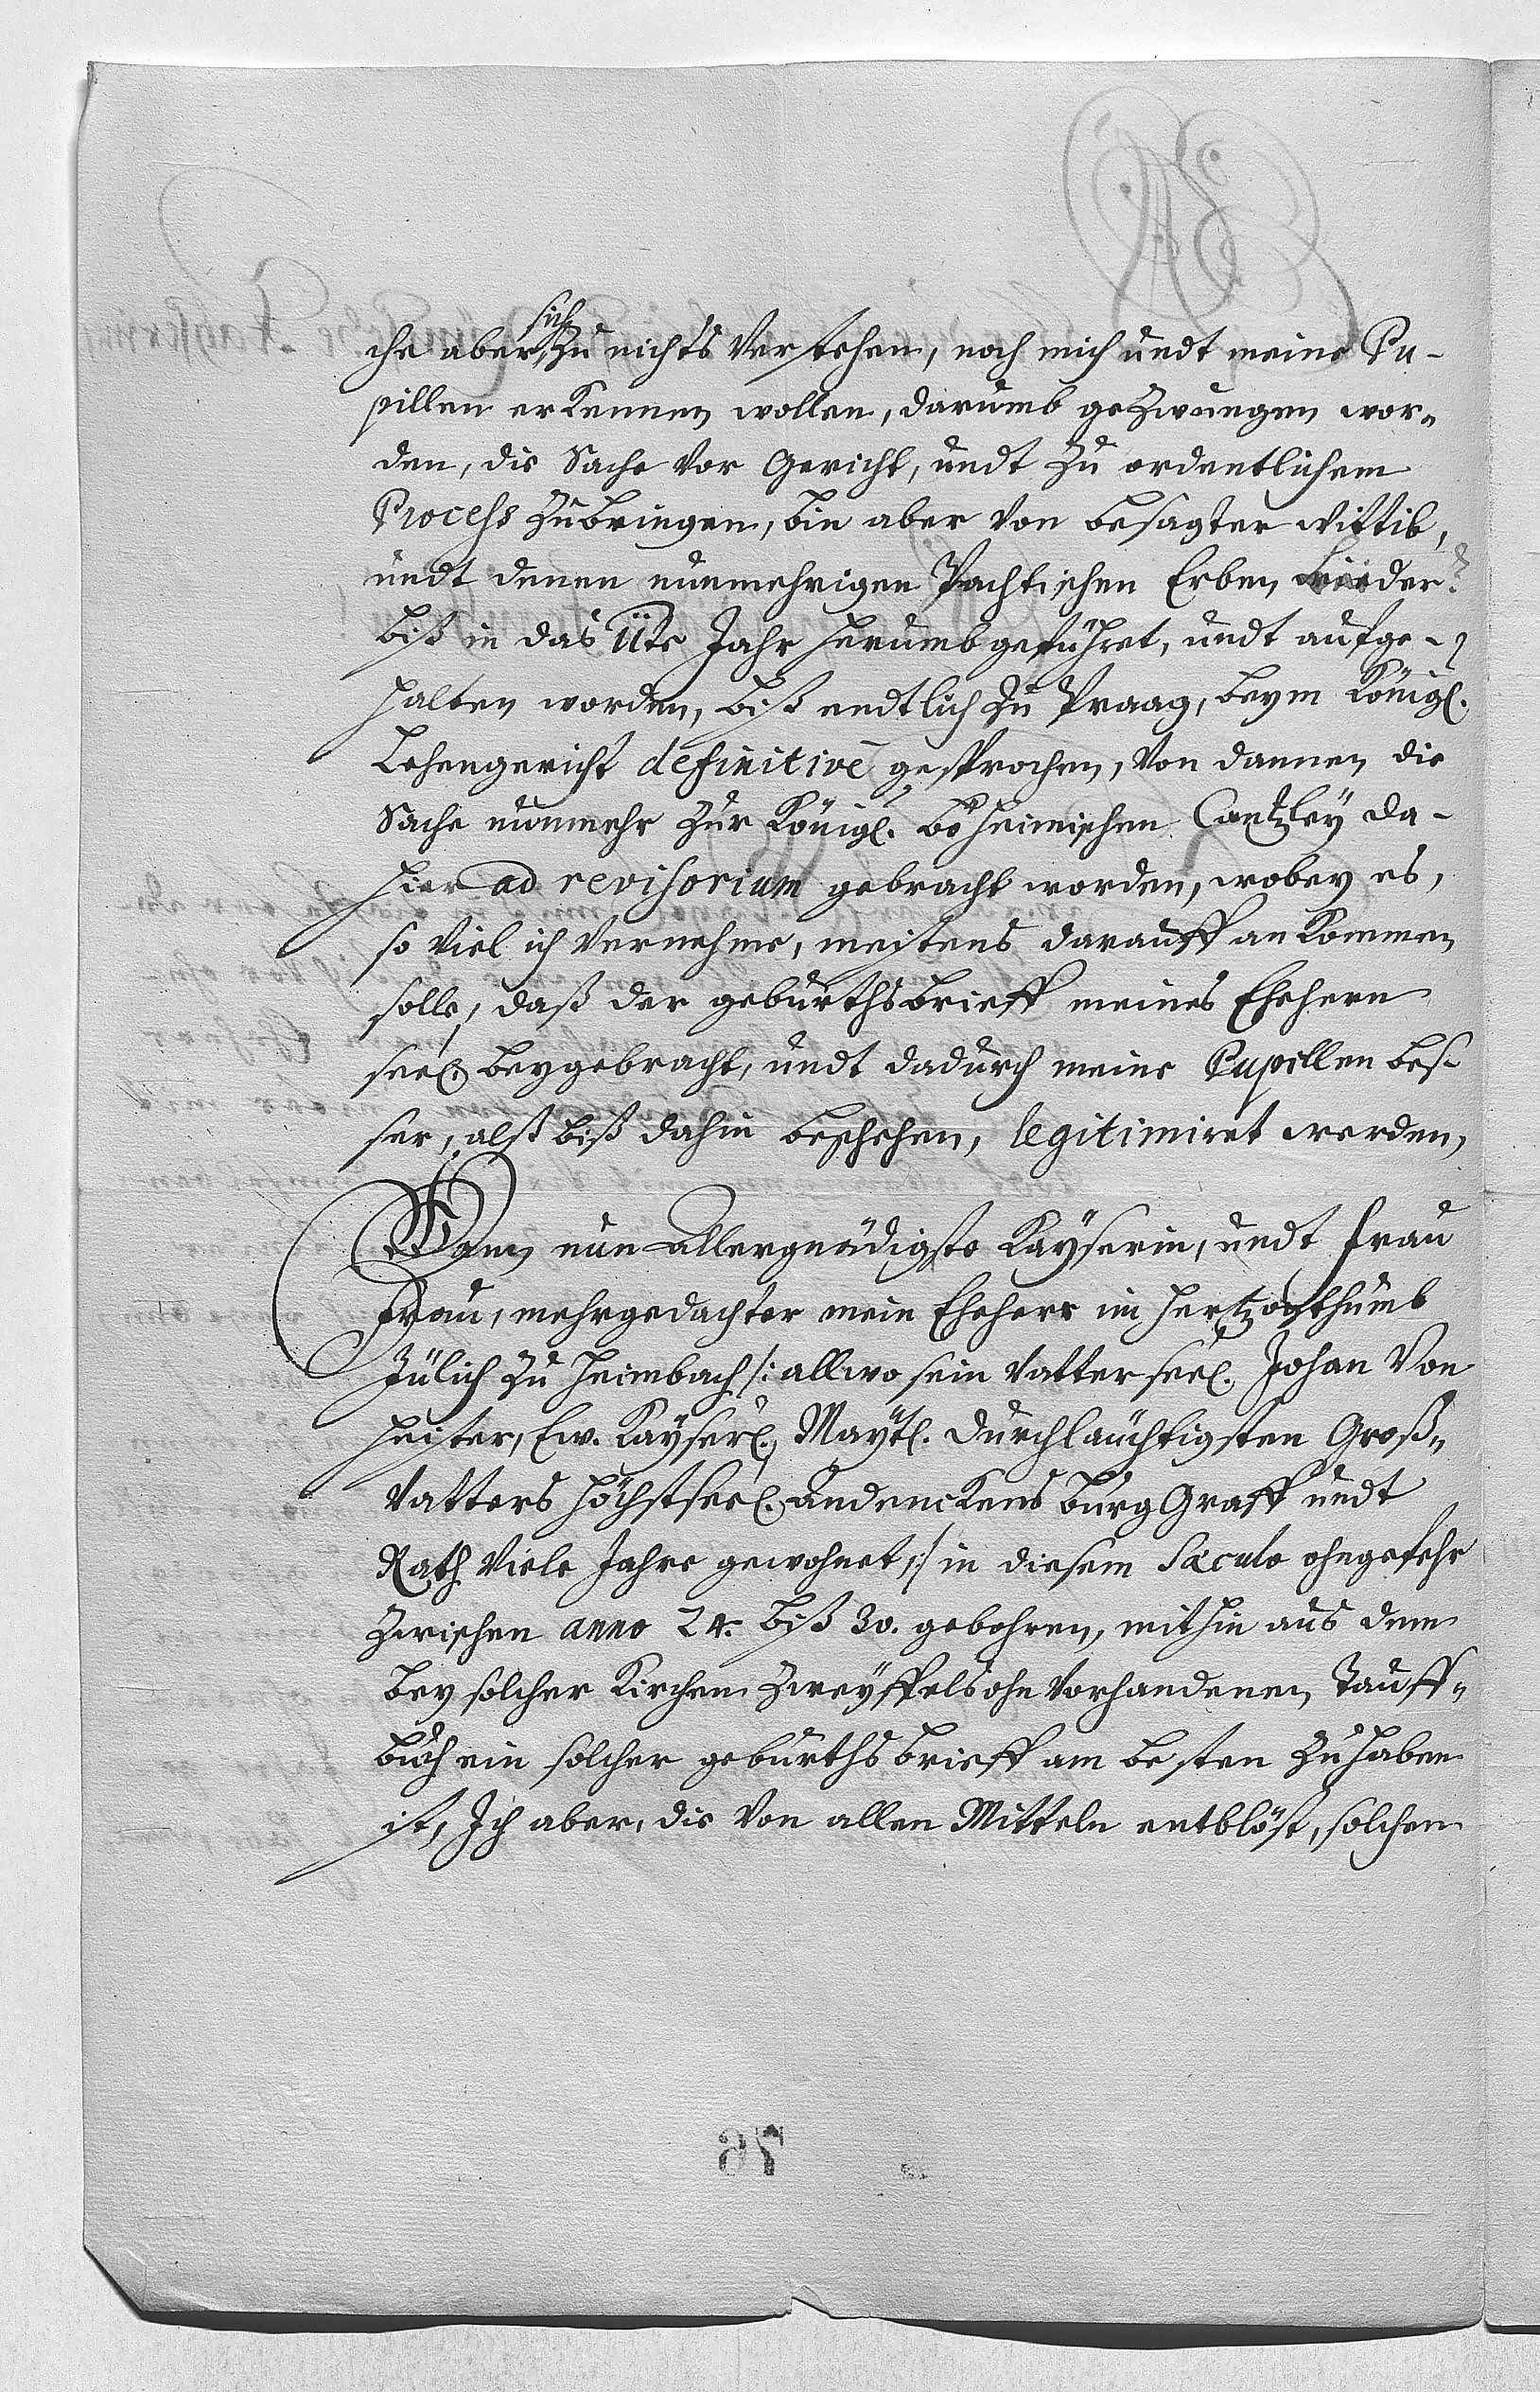 che aber sich zu nichts verstehen, noch mich undt meine Pu-
pillen erkennen wollen, darumb gezwungen wor-
den, die Sache vor Gericht, undt zu ordentlichem
Process zubringen, bin aber von besagter Wittib,
undt denen nunmehrigen Pachtischen Erben,
biß in das 11te Jahr herumbgeführet, undt aufge-
halten worden, biß endtlich zu Praag, beym Königl.
Lehengericht definitivè gesprochen, von dannen die
Sache nunmehr zur Königl. Böheimischen Cantzley da-
hier ad revisorium gebracht worden, wobey es,
so viel ich vernehme, meistens darauff ankommen
solle, daß der geburthsbrieff meines Eheherrn
seel. beygebracht, undt dadurch meine Pupillen bes-
ser, alß biß dahin beschehen, legitimiret werden,
Wann nun Allergnädigste Kayserin, undt Frau
Frau, mehrgedachter mein Eheherr im Hertzogthumb
Jülich zu Heimbach /: allwo sein Vatter seel. Johan von
Heister, Ew. Kayserl. Maytt. durchläuchtigsten Groß-
Vatters höchstseel. Andenckens BurgGraff undt
Rath viele Jahre gewohnet, :/ in diesem Sæculo ohngefehr
zwischen anno 24. biß 30. gebohren, mithin aus dem
bey solcher Kirchen zweyffelsohn vorhandenen Tauff-
buch ein solcher geburthsbrieff am besten zuhaben
ist, Ich aber, die von allen Mitteln entblöst, solchen
76